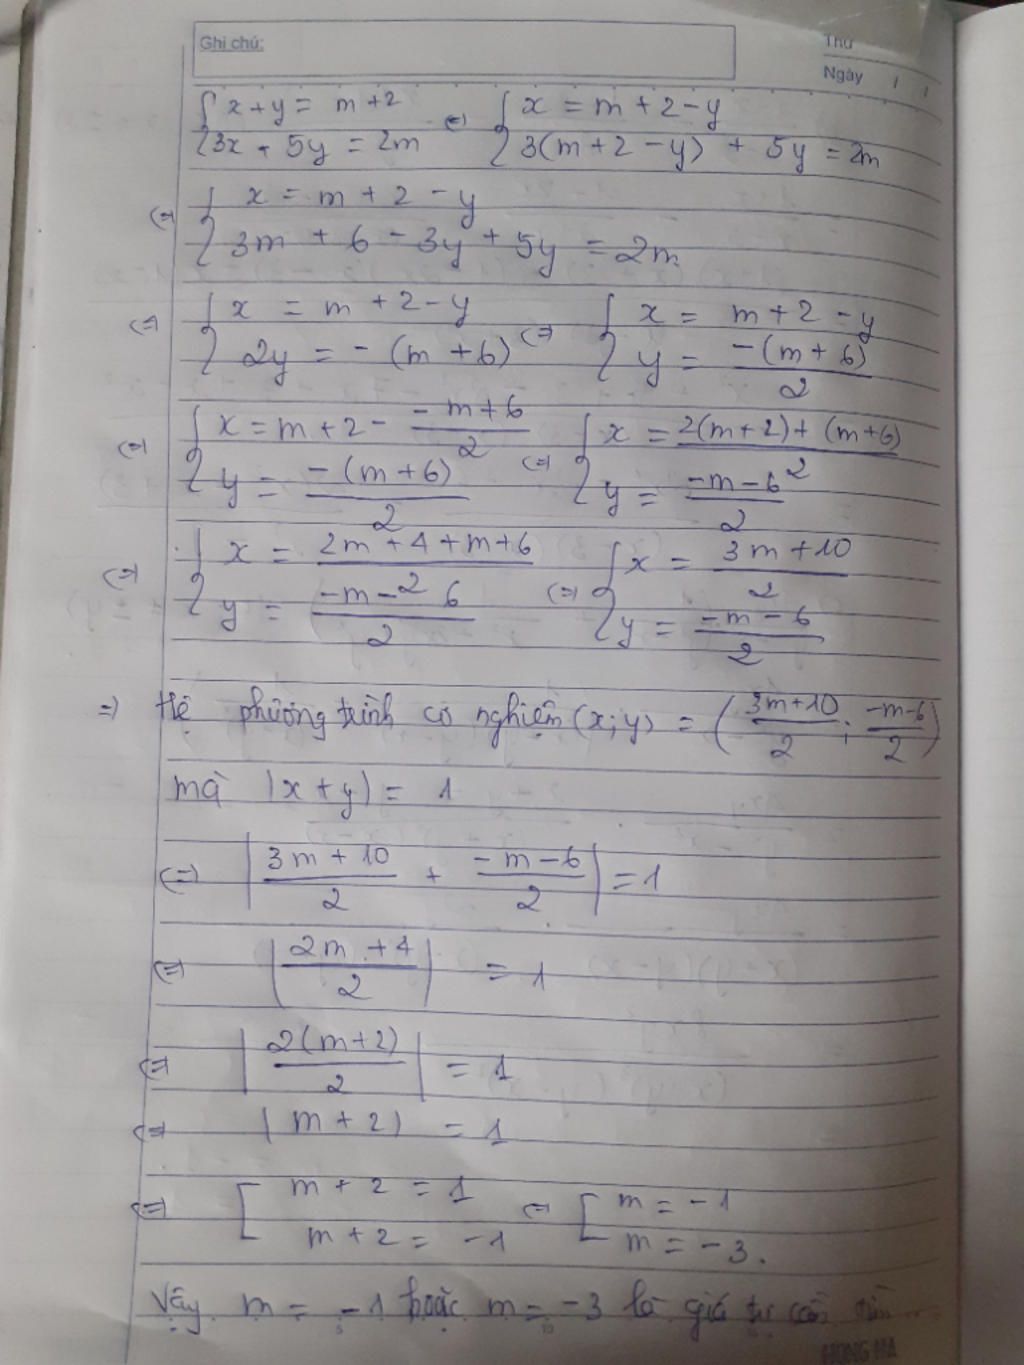 Ghi chú:
Thứ
Ngày / /
{ x + y = m + 2
{ 3x + 5y = 2m
<=> { x = m + 2 - y
{ 3(m + 2 - y) + 5y = 2m
<=> { x = m + 2 - y
{ 3m + 6 - 3y + 5y = 2m
<=> { x = m + 2 - y
{ 2y = - (m + 6)
<=> { x = m + 2 - y
{ y = -(m + 6)/2
<=> { x = m + 2 - (-m + 6)/2
{ y = -(m + 6)/2
<=> { x = (2(m + 2) + (m + 6))/2
{ y = (-m - 6)/2
<=> { x = (2m + 4 + m + 6)/2
{ y = (-m - 6)/2
<=> { x = (3m + 10)/2
{ y = (-m - 6)/2
=> Hệ phương trình có nghiệm (x; y) = ((3m + 10)/2 ; (-m - 6)/2)
mà |x + y| = 1
<=> |(3m + 10)/2 + (-m - 6)/2| = 1
<=> |(2m + 4)/2| = 1
<=> |2(m + 2)/2| = 1
<=> |m + 2| = 1
<=> [ m + 2 = 1
[ m + 2 = -1
<=> [ m = -1
[ m = -3.
Vậy m = -1 hoặc m = -3 là giá trị cần tìm
HONG HA